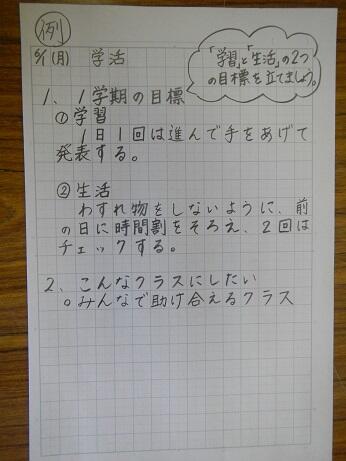 例
6/1(月) 学活
「学習」と「生活」の2つ
の目標を立てましょう。
1、1学期の目標
①学習
1日1回は進んで手をあげて
発表する。
②生活
わすれ物をしないように、前
の日に時間割をそろえ、2回は
チェックする。
2、こんなクラスにしたい
○みんなで助け合えるクラス